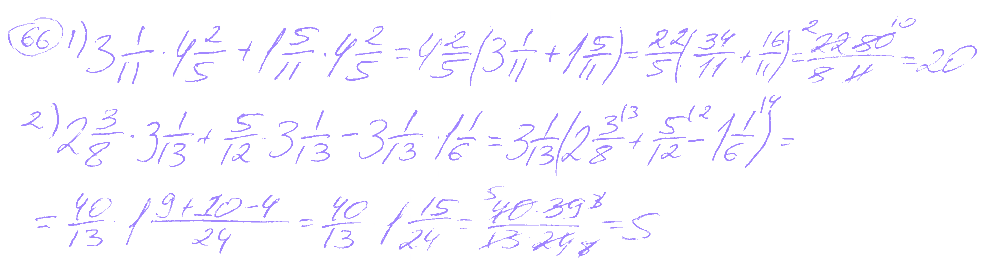 66 1) 3 1/11 · 4 2/5 + 1 5/11 · 4 2/5 = 4 2/5 (3 1/11 + 1 5/11) = 22/5 (34/11 + 16/11) = 22 50/5 11 2 10 = 20
2) 2 3/8 · 3 1/13 + 5/12 · 3 1/13 - 3 1/13 · 1 1/6 = 3 1/13 (2 3/8 + 5/12 - 1 1/6) =
= 40/13 · 1 9+10-4/24 = 40/13 1 15/24 = 40·39/13 24 = 5